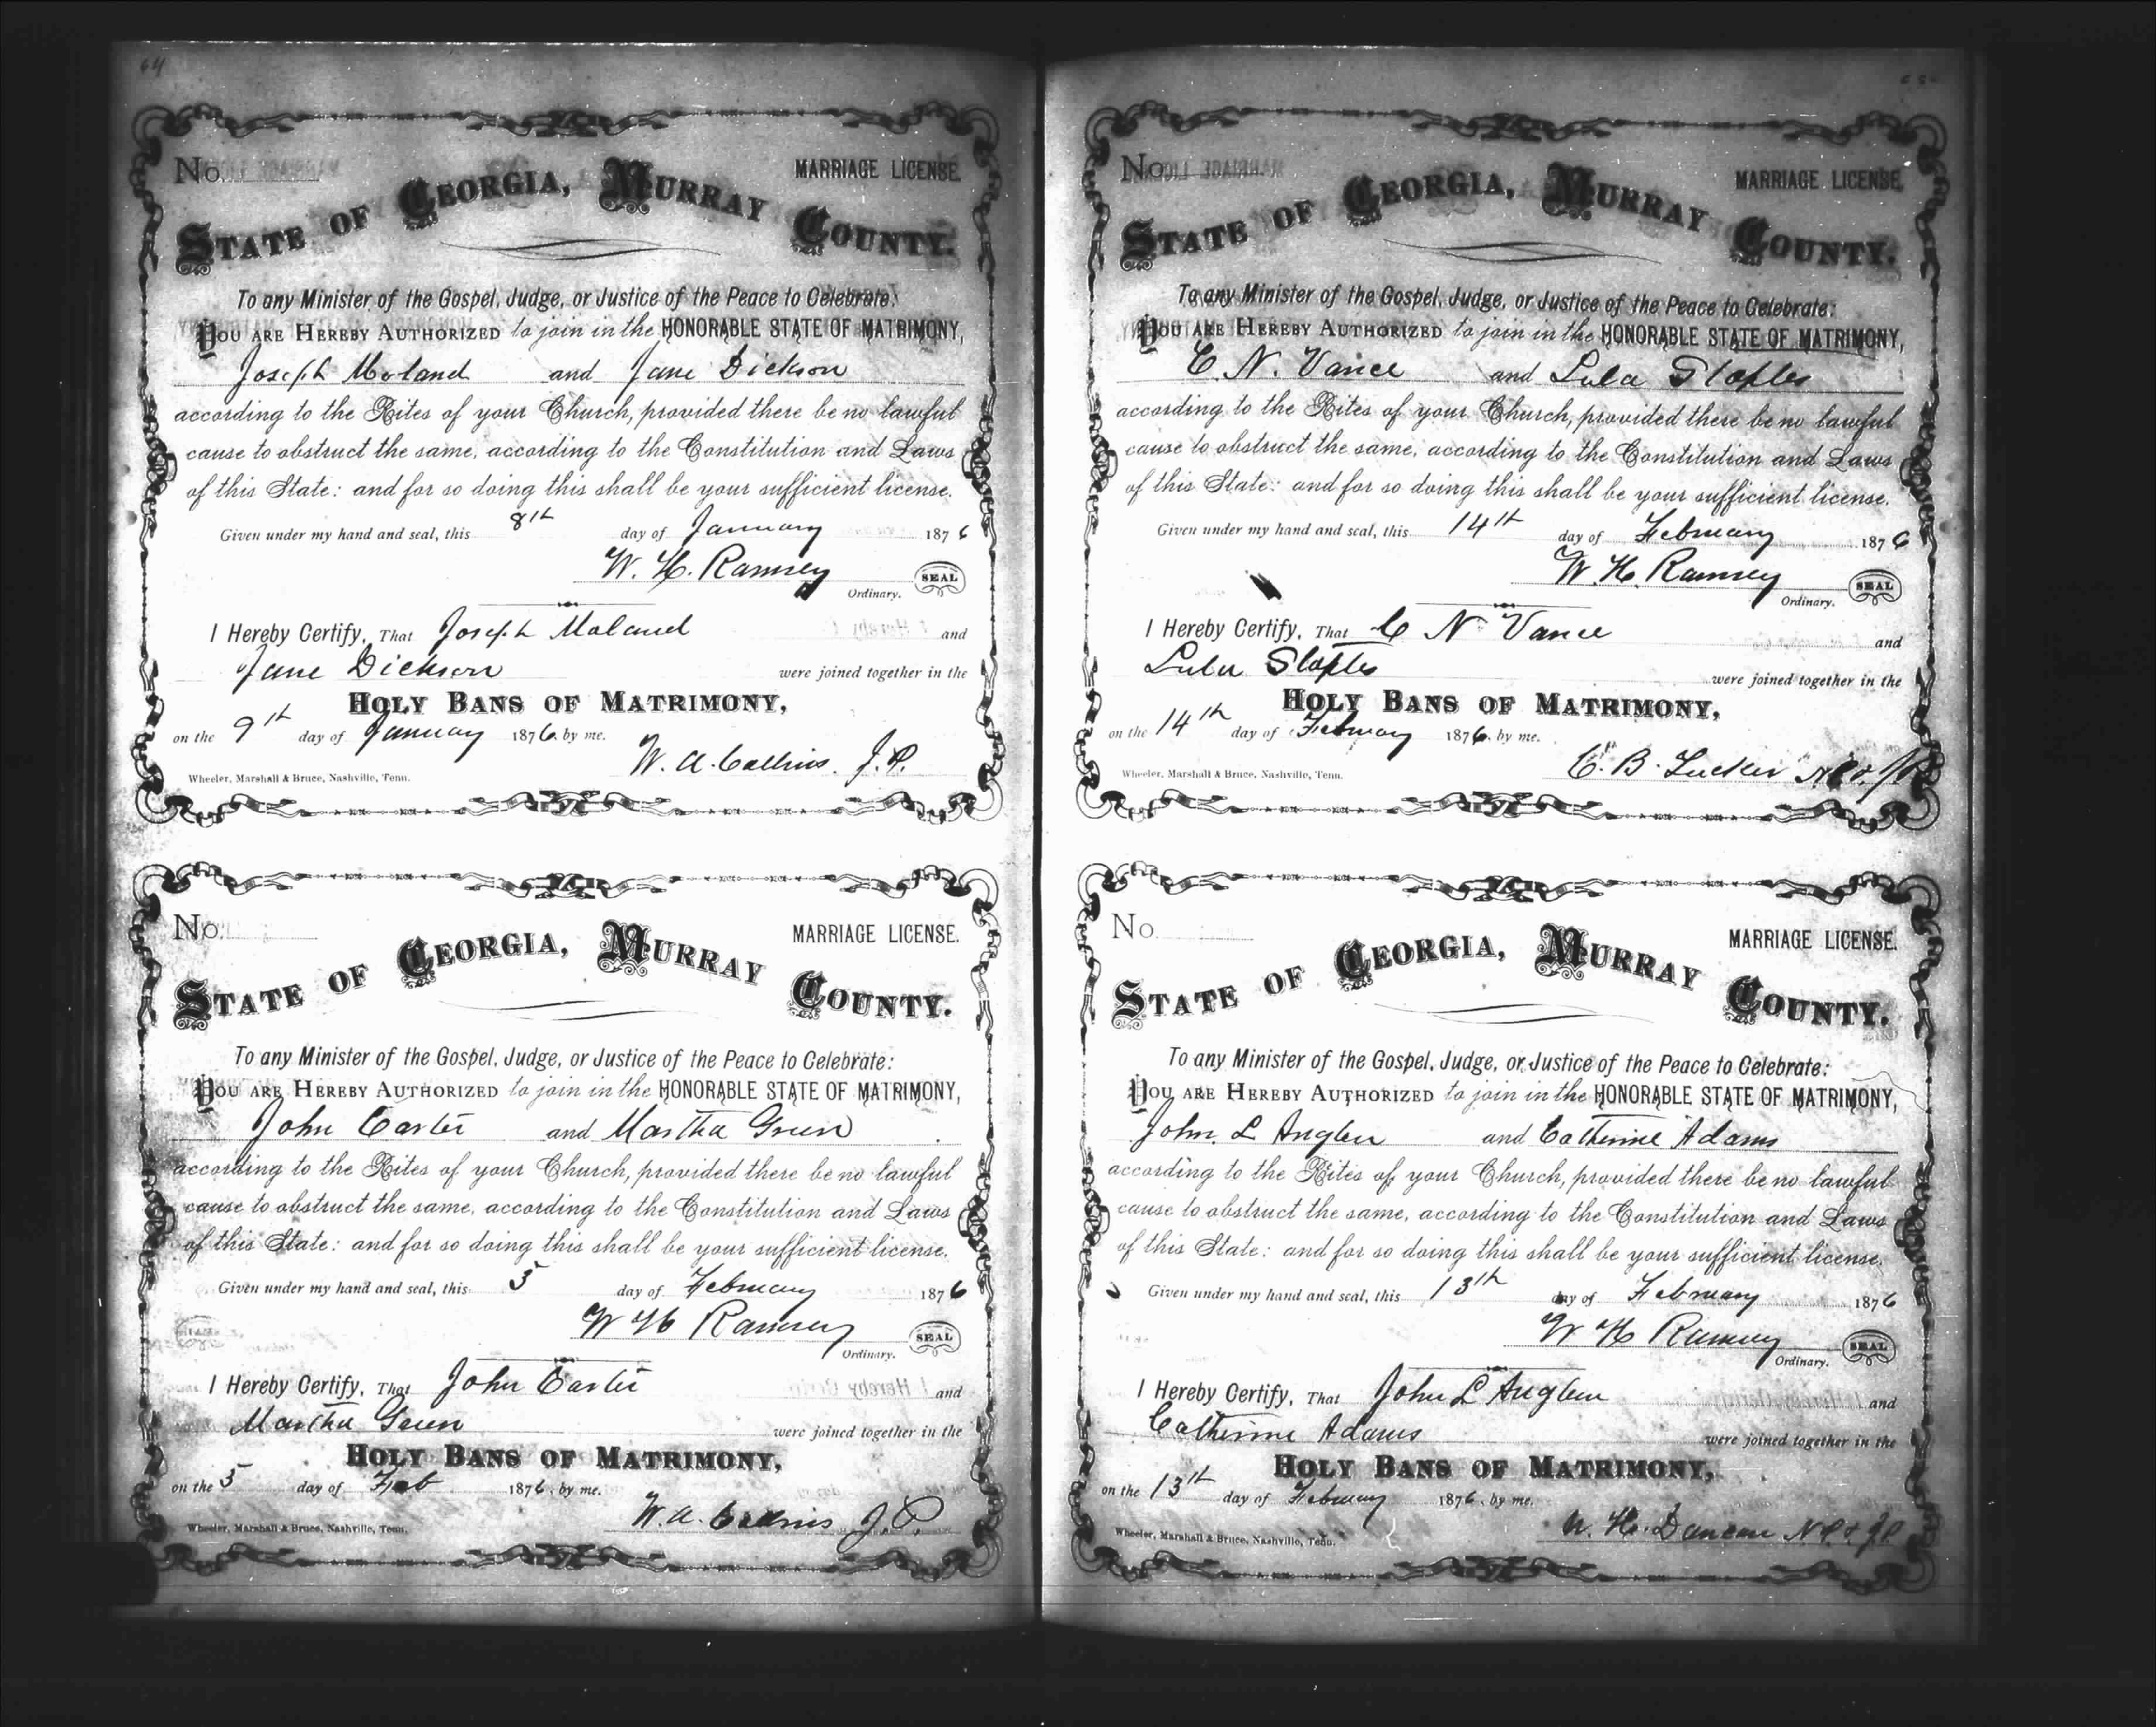 64
No.
MARRIAGE LICENSE.
STATE OF GEORGIA, MURRAY COUNTY.
To any Minister of the Gospel, Judge, or Justice of the Peace to Celebrate:
YOU ARE HEREBY AUTHORIZED to join in the HONORABLE STATE OF MATRIMONY,
Joseph Moland and Jane Dickson
according to the Rites of your Church, provided there be no lawful
cause to obstruct the same, according to the Constitution and Laws
of this State: and for so doing this shall be your sufficient license.
Given under my hand and seal, this 8th day of January 1876
W. H. Ramsey SEAL
Ordinary.
I Hereby Certify, That Joseph Moland and
Jane Dickson were joined together in the
HOLY BANS OF MATRIMONY,
on the 9th day of January 1876. by me.
W. A. Collins. J. P.
Wheeler, Marshall & Bruce, Nashville, Tenn.
No.
MARRIAGE LICENSE.
STATE OF GEORGIA, MURRAY COUNTY.
To any Minister of the Gospel, Judge, or Justice of the Peace to Celebrate:
YOU ARE HEREBY AUTHORIZED to join in the HONORABLE STATE OF MATRIMONY,
John Carter and Martha Green
according to the Rites of your Church, provided there be no lawful
cause to obstruct the same, according to the Constitution and Laws
of this State: and for so doing this shall be your sufficient license.
Given under my hand and seal, this 5 day of February 1876
W H Ramsey SEAL
Ordinary.
I Hereby Certify, That John Carter and
Martha Green were joined together in the
HOLY BANS OF MATRIMONY,
on the 5 day of Feb 1876, by me.
W. A. Collins J. P.
Wheeler, Marshall & Bruce, Nashville, Tenn.
65
No.
MARRIAGE LICENSE.
STATE OF GEORGIA, MURRAY COUNTY.
To any Minister of the Gospel, Judge, or Justice of the Peace to Celebrate:
YOU ARE HEREBY AUTHORIZED to join in the HONORABLE STATE OF MATRIMONY,
C. N. Vance and Lula Staples
according to the Rites of your Church, provided there be no lawful
cause to obstruct the same, according to the Constitution and Laws
of this State: and for so doing this shall be your sufficient license.
Given under my hand and seal, this 14th day of February 1876
W. H. Ramsey SEAL
Ordinary.
I Hereby Certify, That C N Vance and
Lula Staples were joined together in the
HOLY BANS OF MATRIMONY,
on the 14th day of February 1876, by me.
C. B. Tucker
Wheeler, Marshall & Bruce, Nashville, Tenn.
No.
MARRIAGE LICENSE.
STATE OF GEORGIA, MURRAY COUNTY.
To any Minister of the Gospel, Judge, or Justice of the Peace to Celebrate:
YOU ARE HEREBY AUTHORIZED to join in the HONORABLE STATE OF MATRIMONY,
John. L Anglen and Catherine Adams
according to the Rites of your Church, provided there be no lawful
cause to obstruct the same, according to the Constitution and Laws
of this State: and for so doing this shall be your sufficient license.
Given under my hand and seal, this 13th day of February 1876
W H Ramsey SEAL
Ordinary.
I Hereby Certify, That John L Anglen and
Catherine Adams were joined together in the
HOLY BANS OF MATRIMONY,
on the 13th day of February 1876, by me.
W. H. Duncan N.P. & J.P.
Wheeler, Marshall & Bruce, Nashville, Tenn.